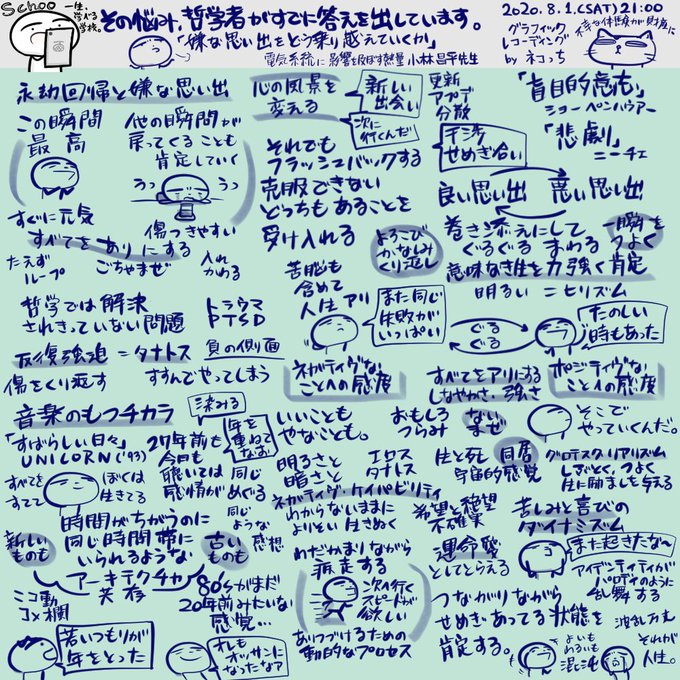 Schoo 一生、学べる学校。
その悩み、哲学者がすでに答えを出しています。
「嫌な思い出をどう乗り越えていくか」
電気系統に影響を及ぼす熱量 小林昌平先生
2020.8.1.(SAT) 21:00
グラフィックレコーディング
by ネコっち
不幸な体験が財産に
永劫回帰と嫌な思い出
この瞬間
最高
他の瞬間が
戻ってくることも
肯定していく
うっ うっ
すぐに元気
傷つきやすい
すべてをありにする
たえず
ループ
ごちゃまぜ
入れ
かわる
哲学では解決
されきっていない問題
トラウマ
PTSD
反復強迫=タナトス
負の側面
傷をくり返す
すすんでやってしまう
心の風景を
変える
新しい
出会い
次に
行くんだ
更新
アプデ
分散
それでも
フラッシュバックする
克服できない
どっちもあることを
受け入れる
干渉
せめぎ合い
「盲目的意志」
ショーペンハウアー
「悲劇」
ニーチェ
良い思い出
悪い思い出
よろこび
かなしみ
くり返し
巻き添えにして
ぐるぐるまわる
瞬を
つよく
意味なき生を力強く肯定
明るいニヒリズム
苦悩も
含めて
人生アリ
また同じ
失敗が
いっぱい
ぐる
ぐる
たのしい
時もあった
ネガティヴな
ことへの感度
すべてをアリにする
しなやかさ・強さ
ポジティヴな
ことへの感度
音楽のもつチカラ
染みる
「すばらしい日々」
UNICORN('93)
27年前も
今日も
聴いては
感情が
年を
重ねて
なお
同じ
めぐる
すべてを
すてて
ぼくは
生きてる
同じ
ような
感想
時間がちがうのに
同じ時間帯に
いられるような
新しい
ものも
古い
ものも
アーキテクチャ
共存
ニコ動
コメ欄
80'sがまだ
20年前みたいな
感覚…
若いつもりが
年をとった
オレも
オッサンに
なったなァ
いいことも
やなことも。
おもしろ
つらみ
ないまぜ
そこで
やっていくんだ。
明るさと
暗さと
エロス
タナトス
生と死 同居
宇宙的感覚
グロテスクリアリズム
しぶとく、つよく
生に励ましを与える
ネガティヴ・ケイパビリティ
わからないままに
よりよい生きぬく
希望と絶望
不確実
苦しみと喜びの
ダイナミズム
わだかまりながら
疾走する
次へ行く
スピードが
欲しい
運命愛
としてとらえる
また起きたな〜
アイデンティティが
パロディのように
乱舞する
ありつづけるための
動的なプロセス
つながりながら
せめぎあってる状態を
肯定する。
波乱万丈
よいも
わるいも
混沌
それが
人生。